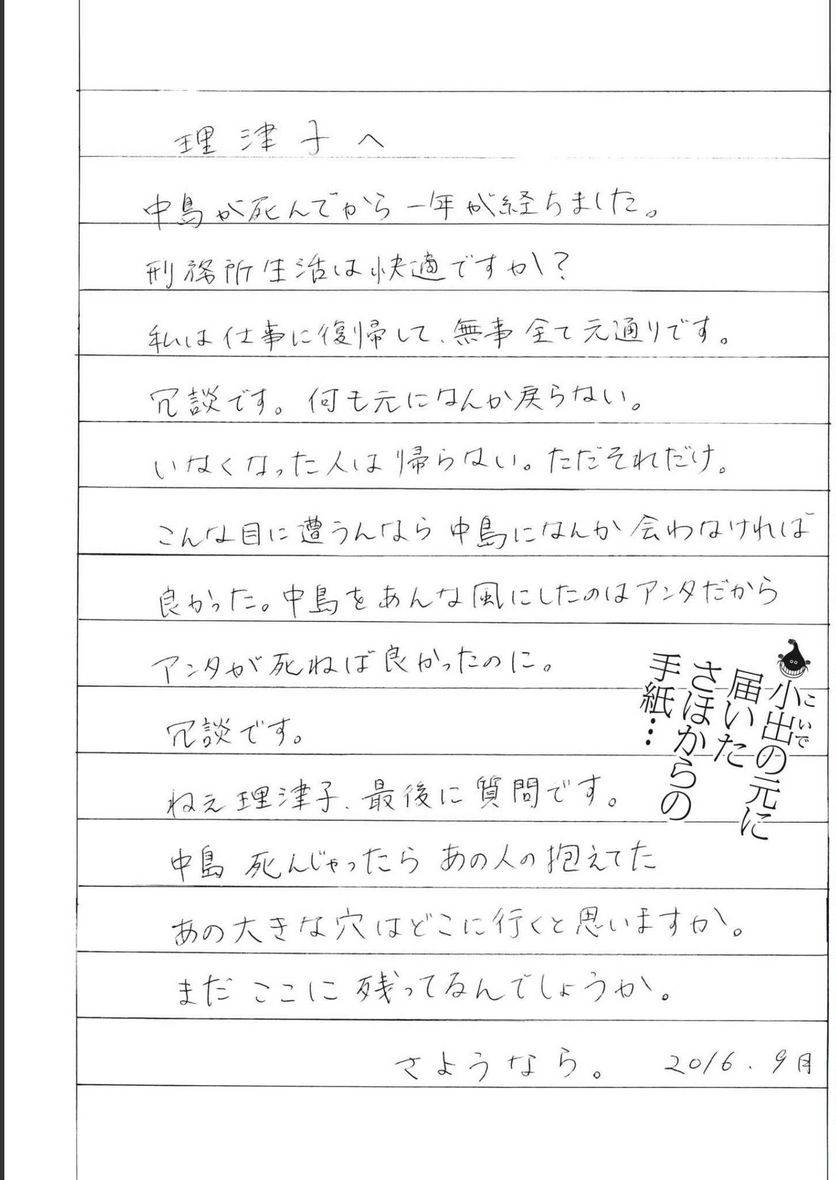 理津子へ
中島が死んでから一年が経ちました。
刑務所生活は快適ですか?
私は仕事に復帰して、無事全て元通りです。
冗談です。何も元になんか戻らない。
いなくなった人は帰らない。ただそれだけ。
こんな目に遭うんなら中島になんか会わなければ
良かった。中島をあんな風にしたのはアンタだから
アンタが死ねば良かったのに。
冗談です。
ねえ理津子、最後に質問です。
中島死んじゃったらあの人の抱えてた
あの大きな穴はどこに行くと思いますか。
まだここに残ってるんでしょうか。
さようなら。 2016.9月
小出の元に
こいで
届いた
さほからの
手紙…